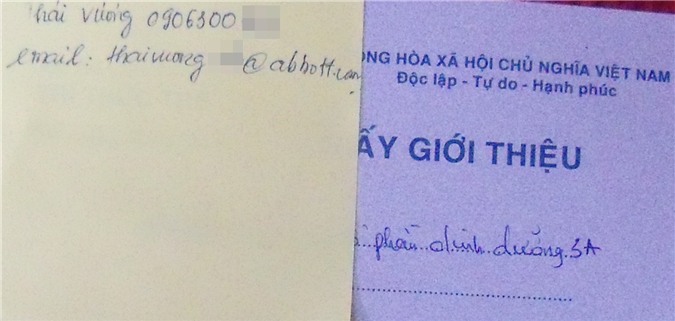 Thái Vương 0906300
email: thaivuong @abbott.com
ỘNG HÒA XÃ HỘI CHỦ NGHĨA VIỆT NAM
Độc lập - Tự do - Hạnh phúc
ẤY GIỚI THIỆU
phần dinh dưỡng 3A